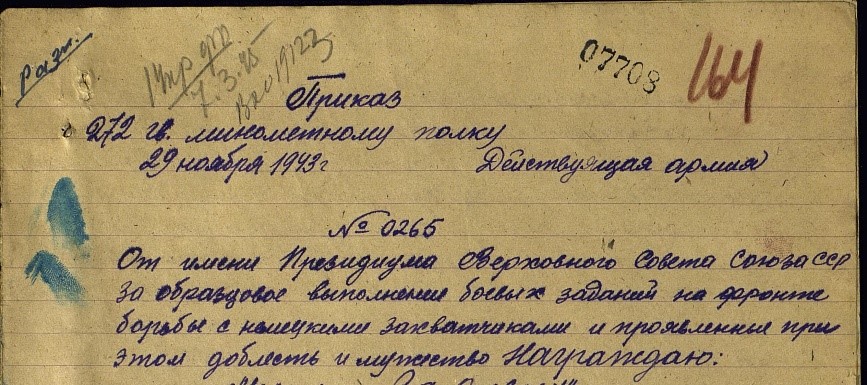 Разн.
7.3.45
Вх 019123
07708
164
Приказ
272 гв. минометному полку
29 ноября 1943г Действующая армия
№ 0265
От имени Президиума Верховного Совета Союза ССР
за образцовое выполнение боевых заданий на фронте
борьбы с немецкими захватчиками и проявленные при
этом доблесть и мужество Награждаю: